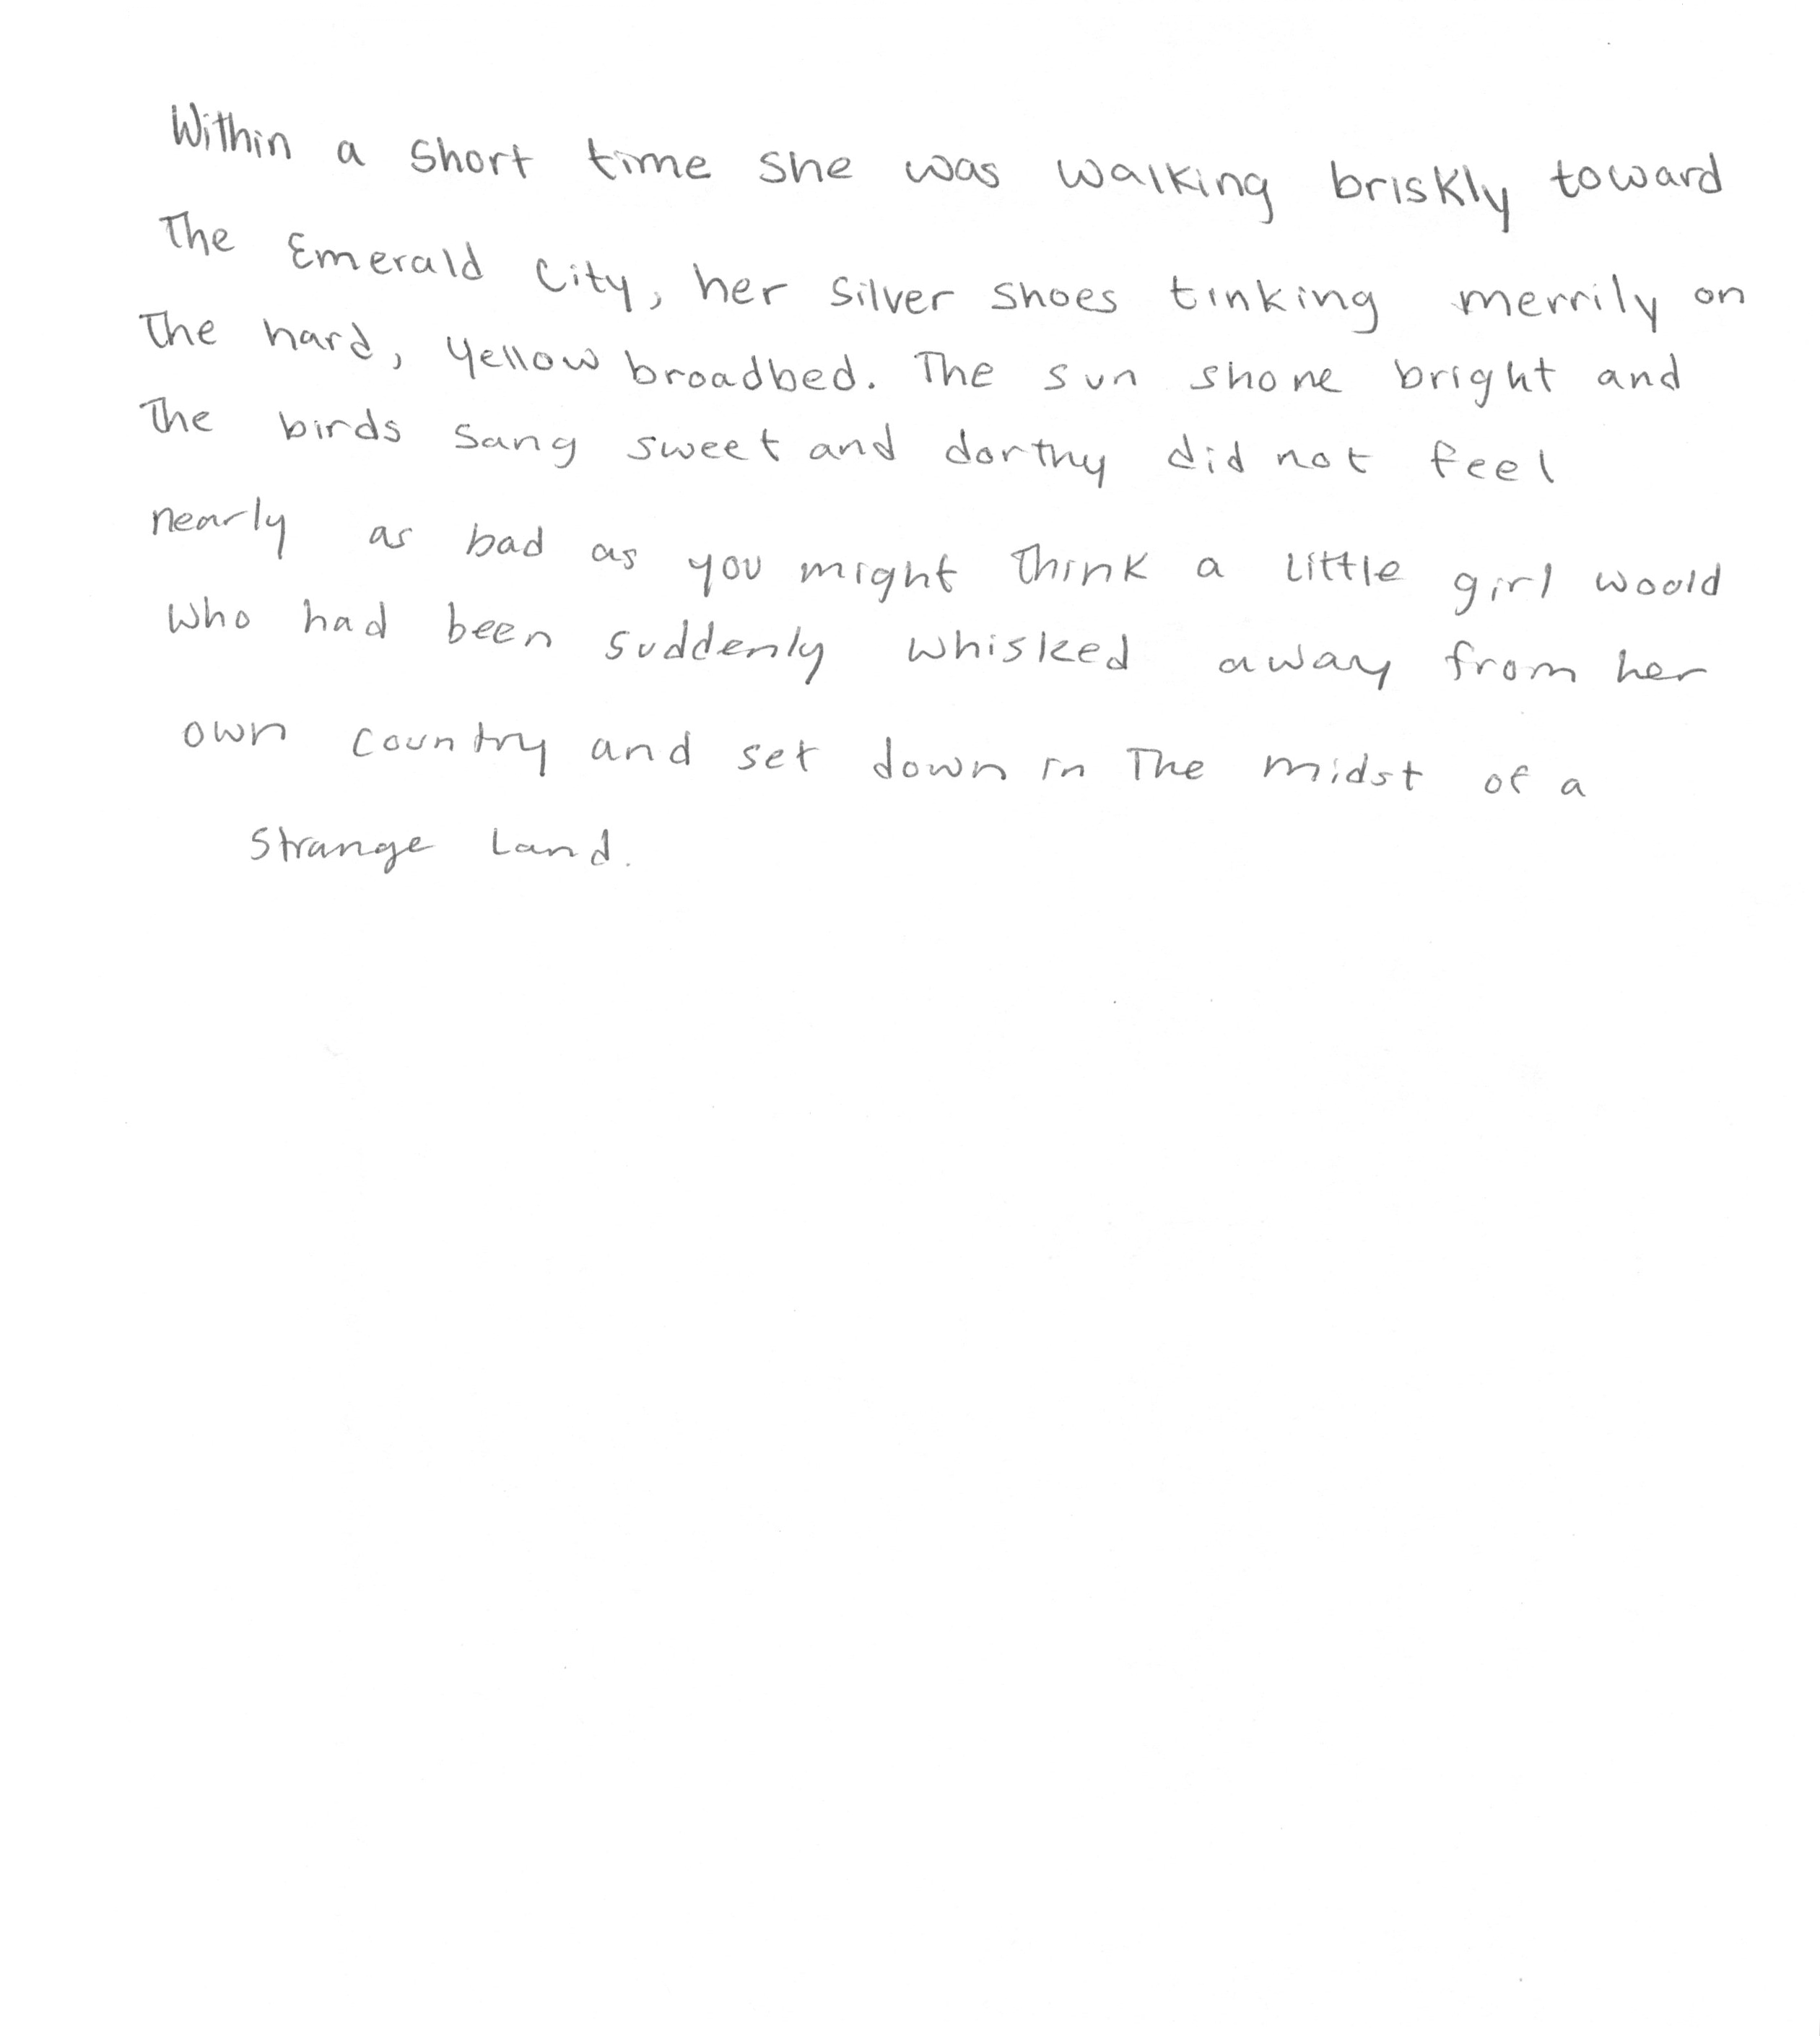 Within a short time she was walking briskly toward
The Emerald City, her silver shoes tinking merrily on
The hard, yellow broadbed. The sun shone bright and
The birds sang sweet and dorthy did not feel
nearly as bad as you might Think a little girl woold
who had been suddenly whisked away from her
own country and set down in The midst of a
strange Land.